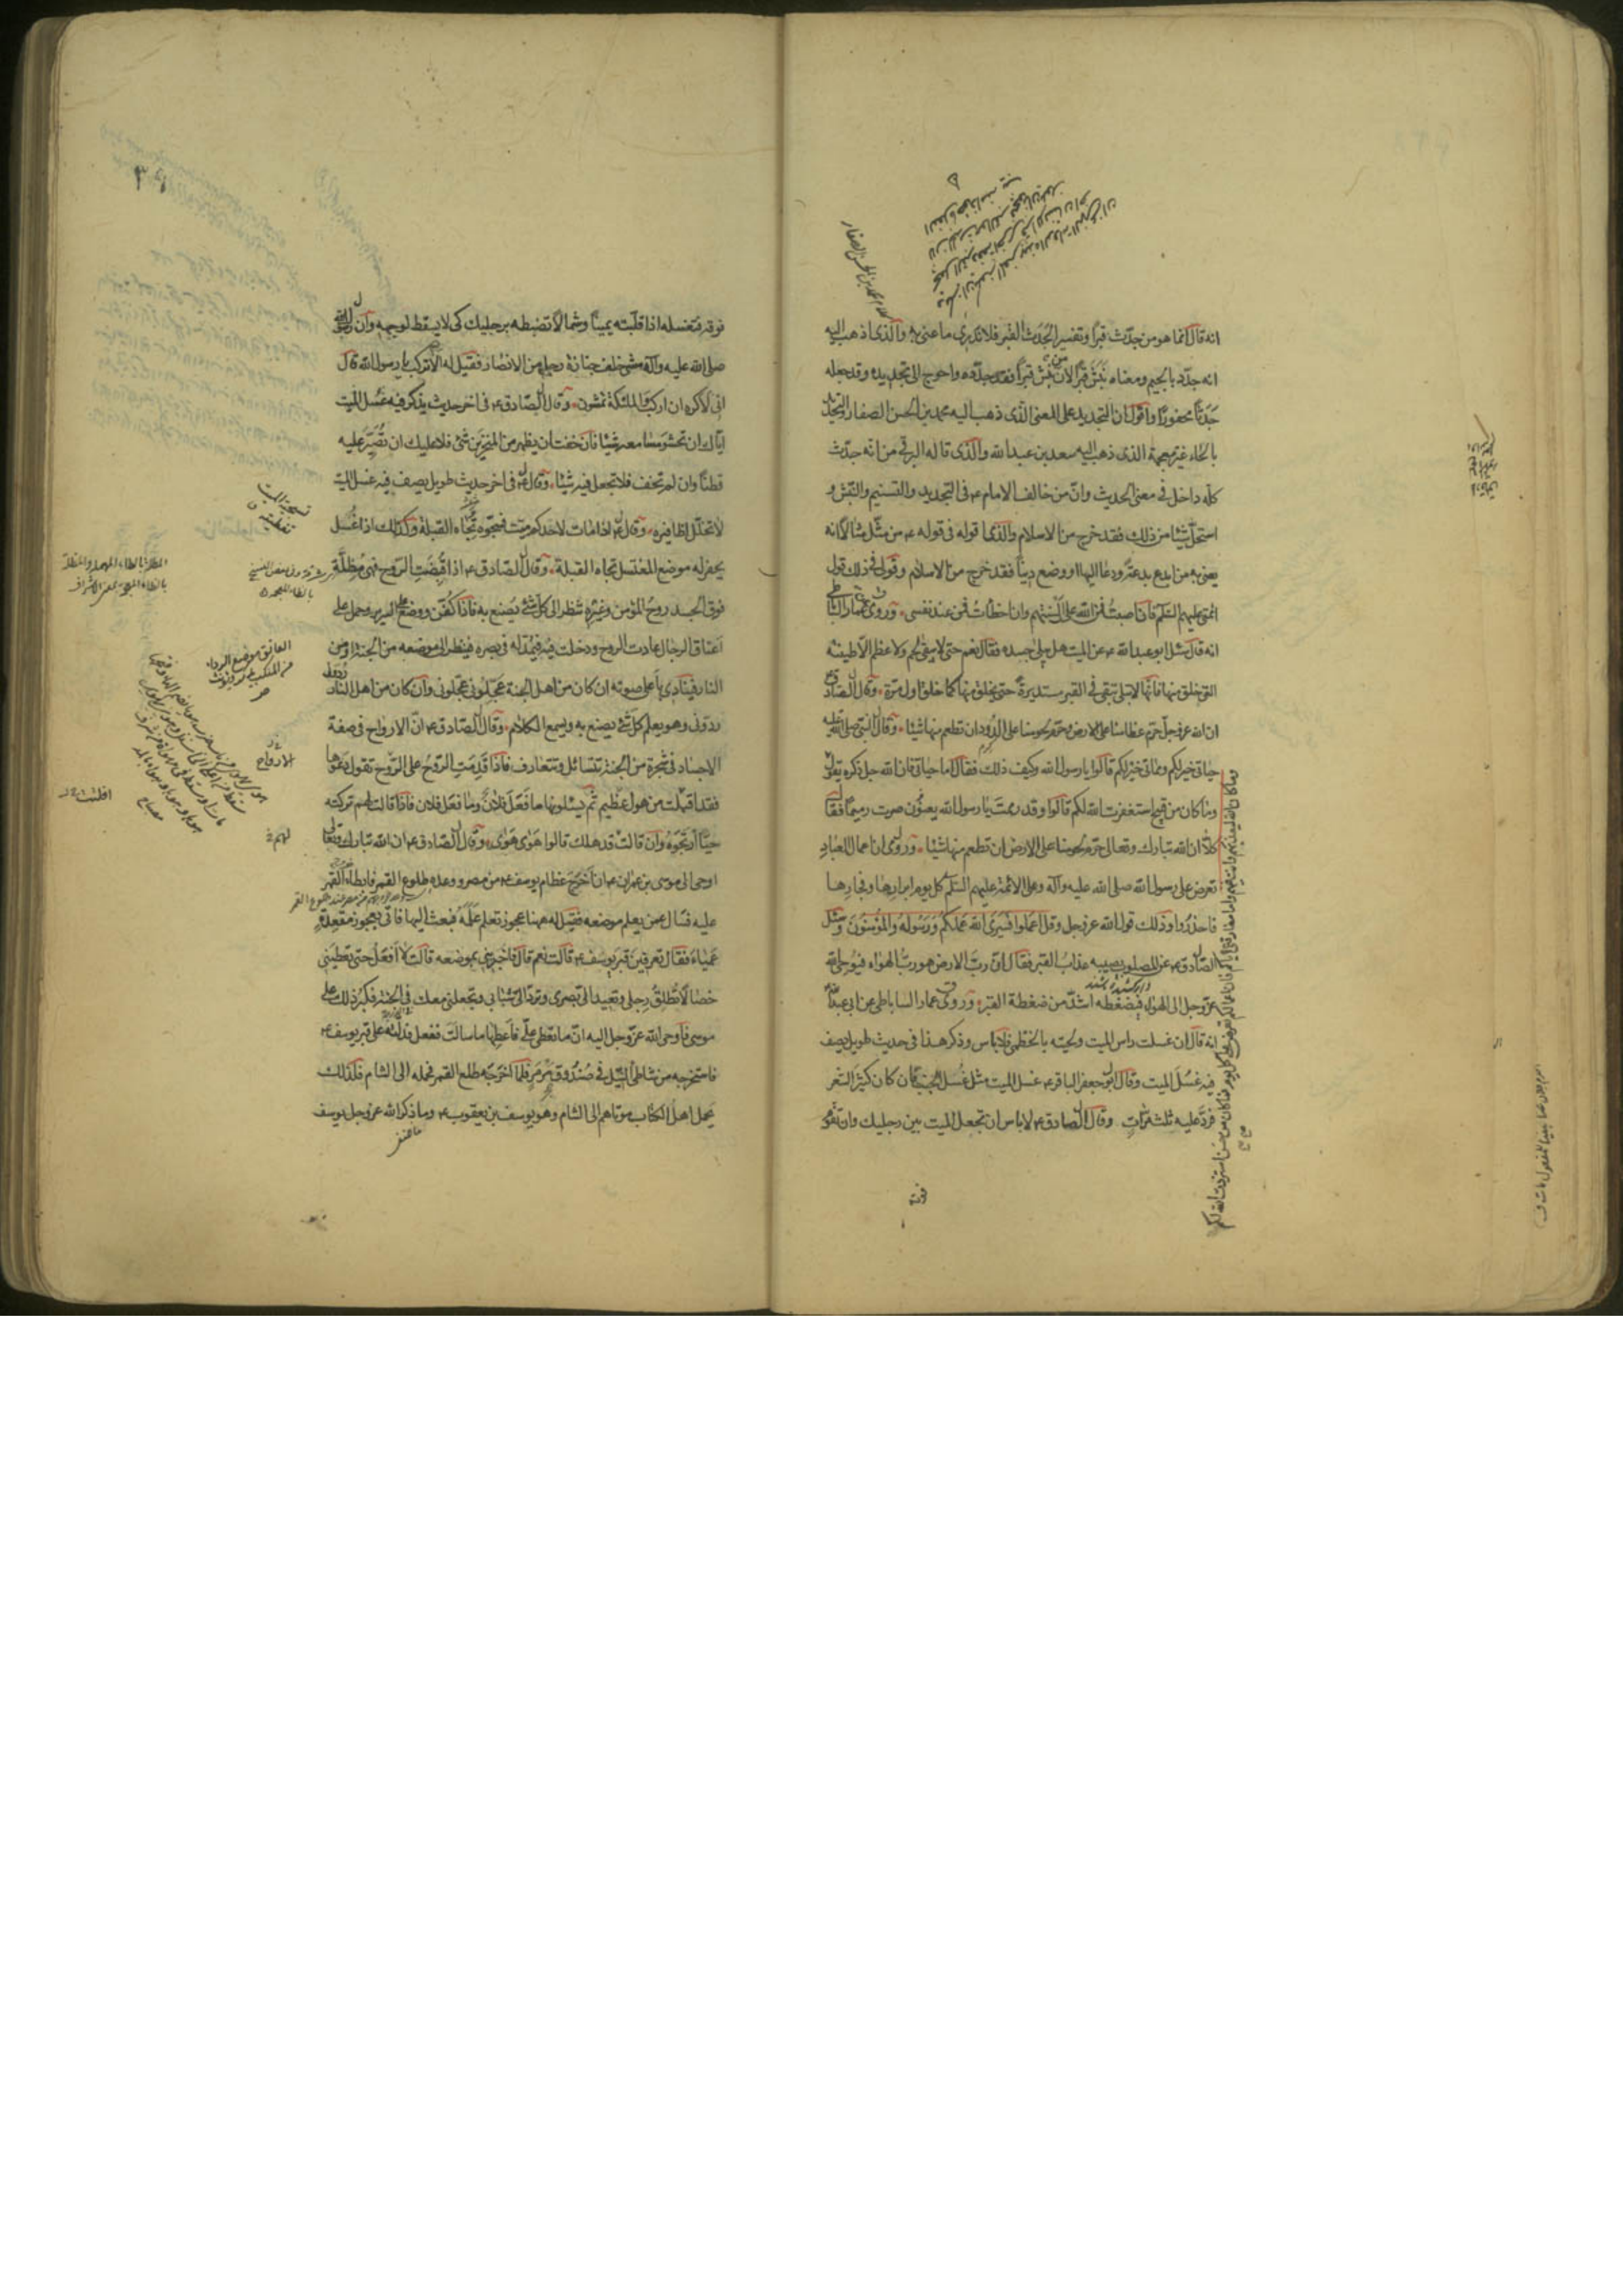 انه قال انما هو من جدّث قبرًا وتفسير الجدث القبر فلا ندرى ما عنى به والذى اذهب اليه
انه جدّد بالجيم ومعناه نبش قبرًا لان من نبش قبرًا فقد جدّده واحوج الى تجديده وقد جعله
جدثًا محفورًا واقول ان التجديد على المعنى الذى ذهب اليه محمد بن الحسن الصفار والتحديد
بالحاء غير معجمة الذى ذهب اليه سعد بن عبد الله والذى قاله البرقى من انه جدّث
كله داخل فى معنى الحديث وان من خالف الامام ع فى التجديد والتسنيم والنبش و
استحلّ شيئا من ذلك فقد خرج من الاسلام والذى اقوله فى قوله ع من مثّل مثالا انه
يعنى به من ابدع بدعة ودعا اليها او وضع دينًا فقد خرج من الاسلام وقولى فى ذلك قول
ائمتى عليهم السلم فان اصبت فمن الله على السنتهم وان اخطأت فمن عند نفسى وروى عمار الساباطى
انه قال سئل ابو عبد الله ع عن الميت هل يبلى جسده فقال نعم حتى لا يبقى لحم ولا عظم الا طينته
التى خلق منها فانها لا تبلى تبقى فى القبر مستديرة حتى يخلق منها كما خلق اول مرة وقال الصادق
ان الله عز وجل حرّم عظامنا على الارض وحرّم لحومنا على الدود ان تطعم منها شيئا وقال النبى صلى الله عليه
حياتى خير لكم ومماتى خير لكم قالوا يا رسول الله وكيف ذلك فقال اما حياتى فان الله جل ذكره يقول
وما كان من قبيح استغفرت الله لكم قالوا وقد رممت يا رسول الله يعنون صرت رميمًا فقال
كلا ان الله تبارك وتعالى حرّم لحومنا على الارض ان تطعم منها شيئا وروى ان اعمال العباد
تعرض على رسول الله صلى الله عليه وآله وعلى الائمة عليهم السلم كل يوم ابرارها وفجارها
فاحذروا وذلك قول الله عز وجل وقل اعملوا فسيرى الله عملكم ورسوله والمؤمنون وسئل
الصادق ع عن المصلوب يصيبه عذاب القبر فقال ان رب الارض هو رب الهواء فيوحى الله
عز وجل الى الهواء فيضغطه اشدّ من ضغطة القبر وروى عمار الساباطى عن ابى عبد الله
انه قال ان غسلت راس الميت ولحيته بالخطمى فلا باس وذكر هذا فى حديث طويل يصف
فيه غسل الميت وقال ابو جعفر الباقر ع غسل الميت مثل غسل الجنب فان كان كثير الشعر
فردّ عليه ثلث مرات وقال الصادق ع لا باس ان تجعل الميت بين رجليك وان تقوم
فوقه
٣٩
فوقه فتغسله اذا قلّبته يمينًا وشمالًا تضبطه برجليك كى لا يسقط لوجهه وان رسول الله
صلى الله عليه وآله مشى خلف جنازة رجل من الانصار فقيل له الا تركب يا رسول الله قال
انى لاكره ان اركب والملئكة يمشون وقال الصادق ع فى اخر حديث يذكر فيه غسل الميت
اياك ان تحشو مسامعه شيئا فان خفت ان يظهر من المنخرين شئ فلا عليك ان تصيّر عليه
قطنًا وان لم تخف فلا تجعل فيه شيئا وقال ع فى اخر حديث طويل يصف فيه غسل الميت
لا تخلّل اظافيره وقال ع اذا مات لاحدكم ميت فسجّوه تجاه القبلة وكذلك اذا غسل
يحفر له موضع المغتسل تجاه القبلة وقال الصادق ع اذا قبضت الروح فهى مظلّة
فوق الجسد روح المؤمن وغيره تنظر الى كل شئ يصنع به فاذا كفّن ووضع على السرير وحمل على
اعناق الرجال عادت الروح ودخلت فيه فيمد له فى بصره فينظر الى موضعه من الجنة او من
النار فينادى باعلى صوته ان كان من اهل الجنة عجّلونى عجّلونى وان كان من اهل النار
ردّونى وهو يعلم كل شئ يصنع به ويسمع الكلام وقال الصادق ع ان الارواح فى صفة
الاجساد فى شجرة من الجنة تتسائل وتتعارف فاذا قدمت الروح على الروح تقول دعوها
فقد اقبلت من هول عظيم ثم يسئلونها ما فعل فلان وما فعل فلان فاذا قالت لهم تركته
حيًّا ارتجوه وان قالت قد هلك قالوا هوى هوى وقال الصادق ع ان الله تبارك وتعالى
اوحى الى موسى بن عمران ع ان اخرج عظام يوسف ع من مصر ووعده طلوع القمر فابطاء القمر
عليه فسال عمن يعلم موضعه فقيل له ههنا عجوز تعلم علمه فبعث اليها فاتى بعجوز مقعدة
عمياء فقال تعرفين قبر يوسف ع قالت نعم قال فاخبرينى بموضعه قالت لا افعل حتى تعطينى
خصالًا تطلق رجلى وتعيد الىّ بصرى وتردّ الىّ شبابى وتجعلنى معك فى الجنة فكبر ذلك على
موسى فاوحى الله عز وجل اليه انّ ما تعطى علىّ فاعطها ما سالت ففعل فدلّته على قبر يوسف ع
فاستخرجه من شاطئ النيل فى صندوق مرمر فلما اخرجه طلع القمر فحمله الى الشام فلذلك
يحمل اهل الكتاب موتاهم الى الشام وهو يوسف بن يعقوب ع وما ذكر الله عز وجل يوسف